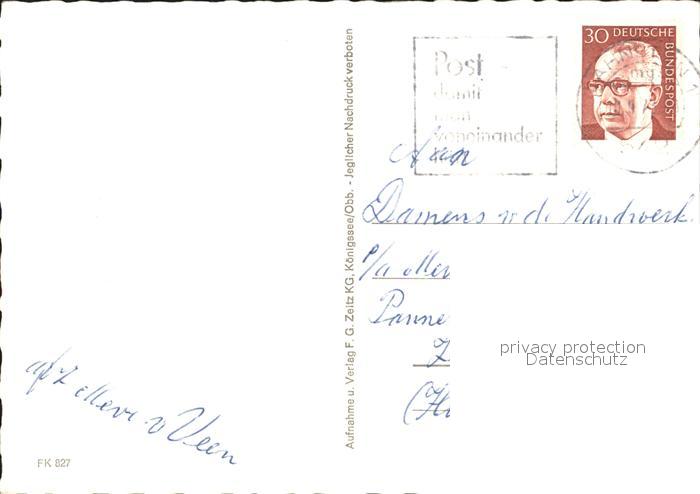 30 DEUTSCHE BUNDESPOST
Post -
damit
man
voneinander
Aan
Damens v d. Handwerk.
p/a Mev
Panne
Z
(H
privacy protection
Datenschutz
Aufnahme u. Verlag F. G. Zeitz KG, Königssee/Obb. - Jeglicher Nachdruck verboten
afz Mevr. v Veen
FK 827